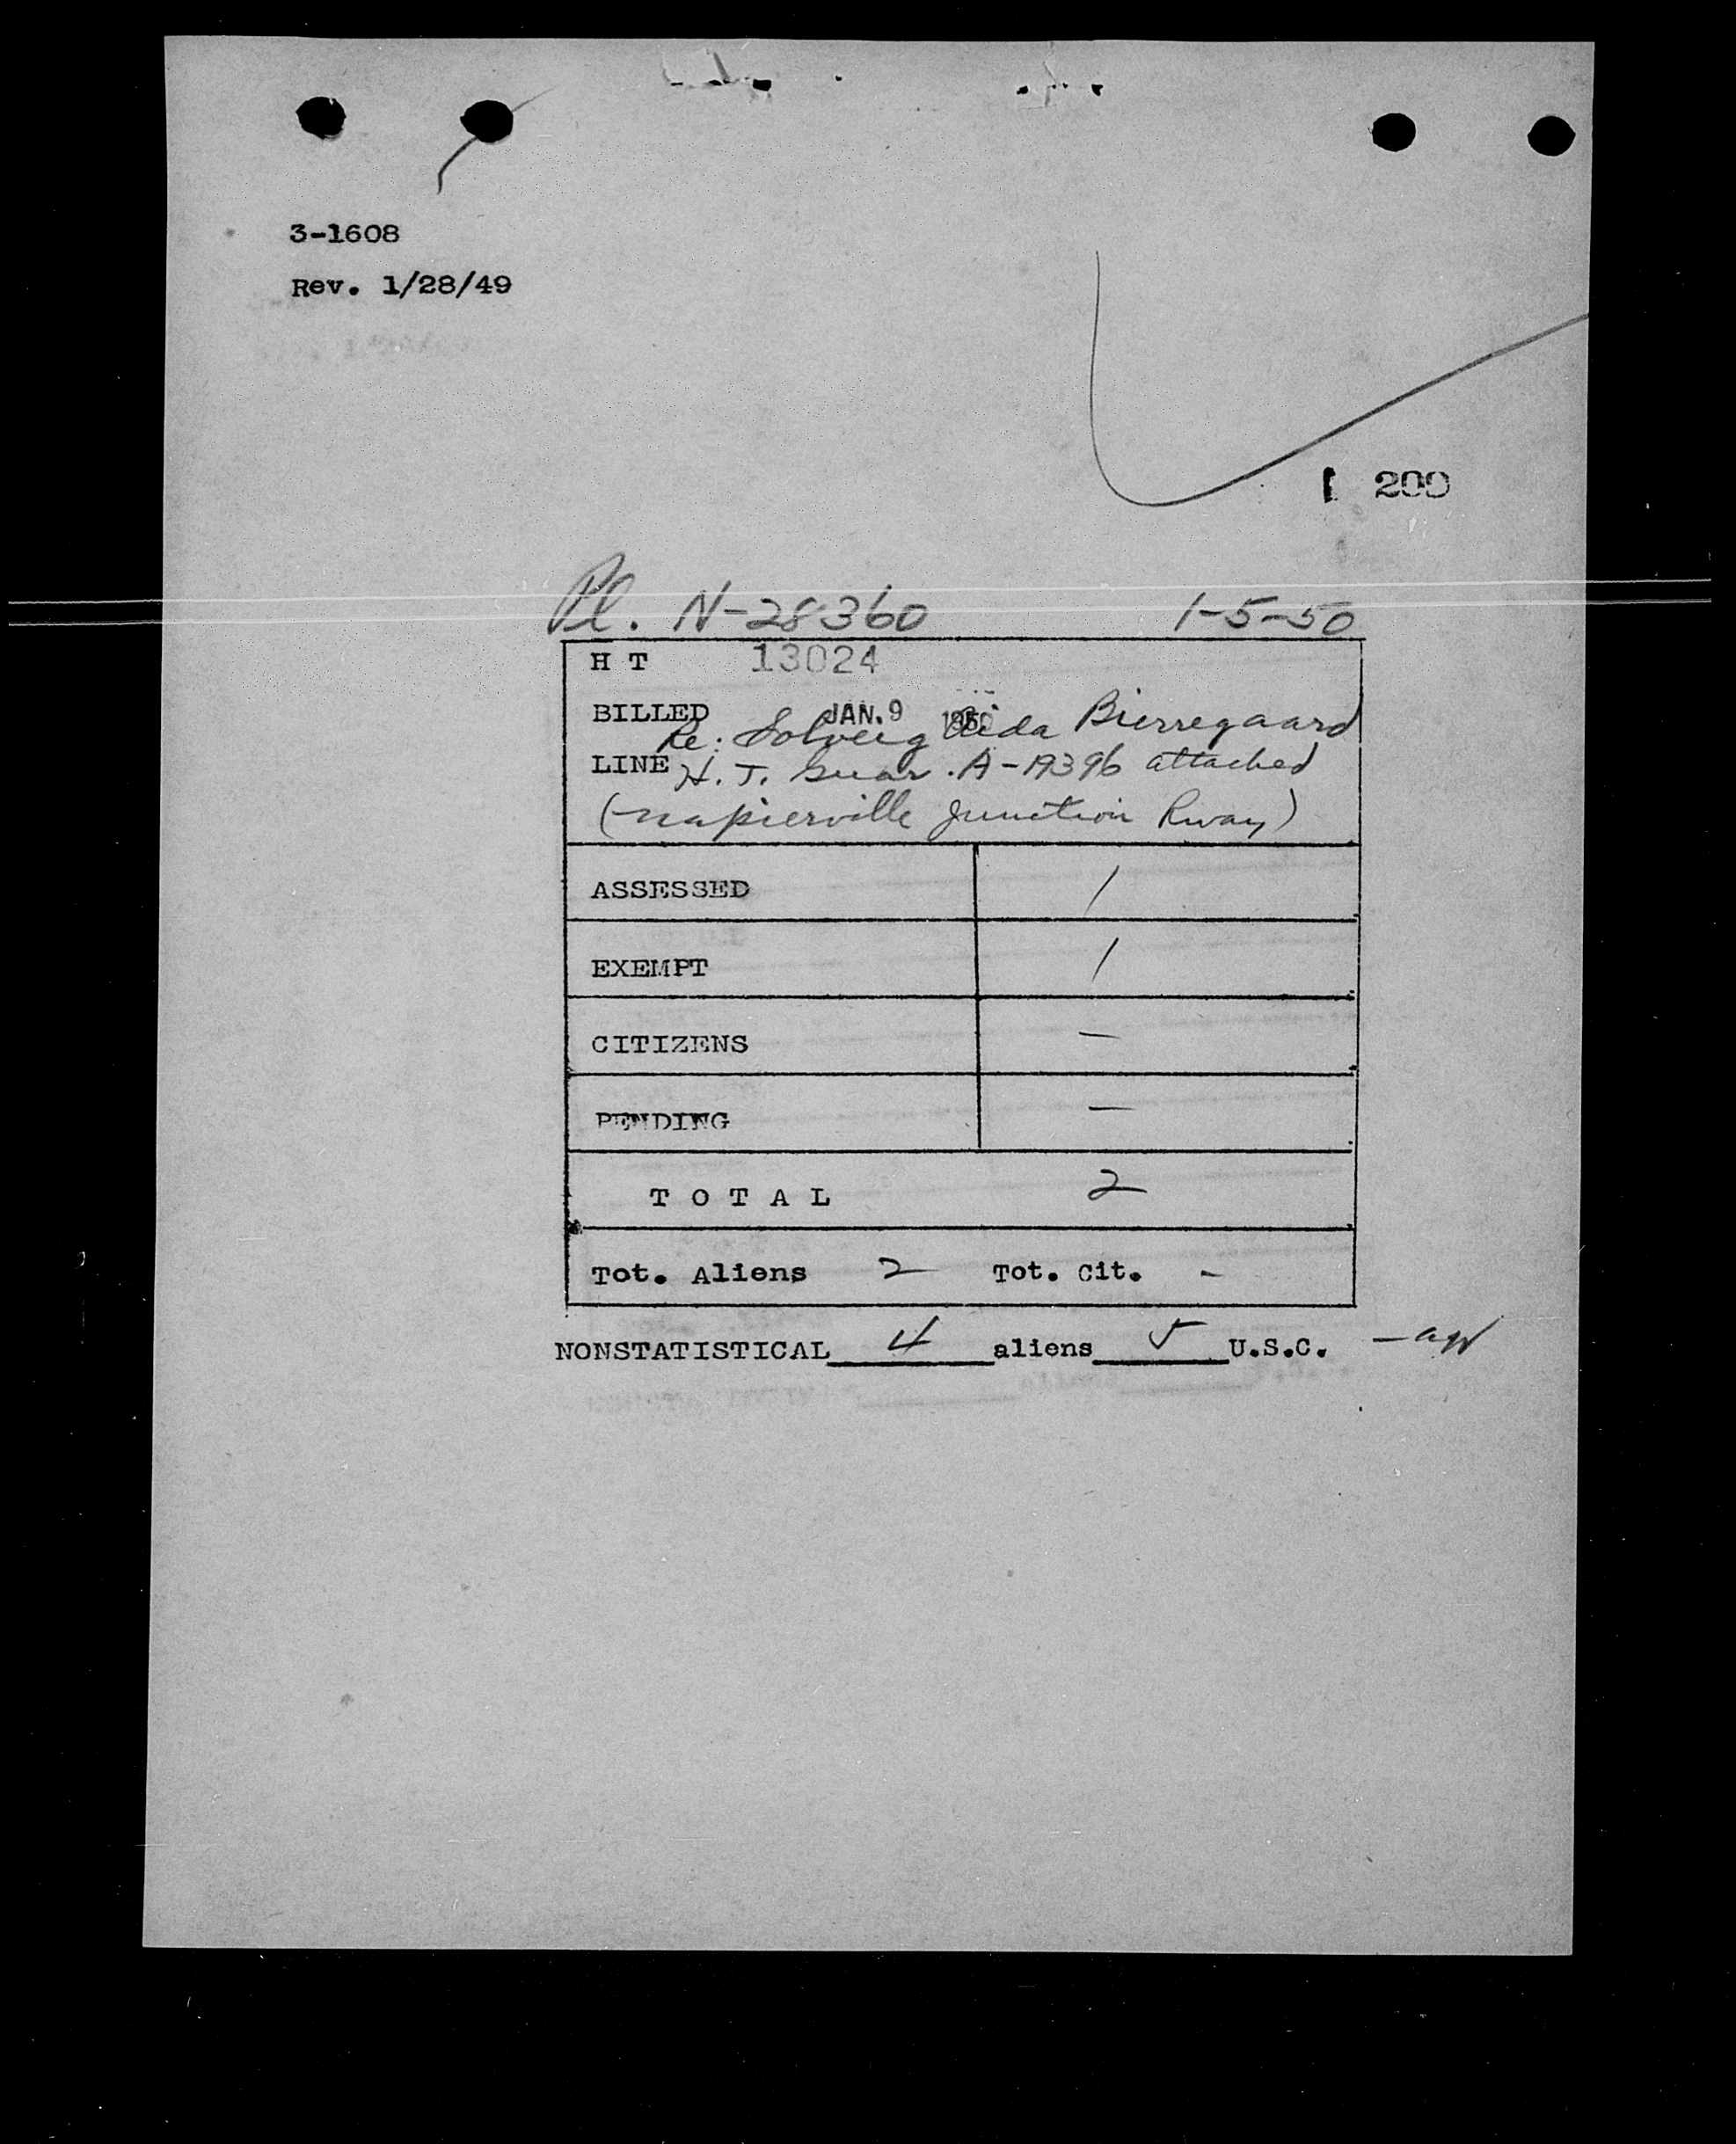 3-1608
Rev. 1/28/49
200
Pl. N-28360 1-5-50
H T 13024
BILLED JAN. 9 1950
Re: Solveig Aida Bierregaard
LINE H. T. Guar. A-19396 attached
(Napierville Junction Rway)
ASSESSED 1
EXEMPT 1
CITIZENS —
PENDING —
T O T A L 2
Tot. Aliens 2 Tot. Cit. -
NONSTATISTICAL 4 aliens 5 U.S.C.